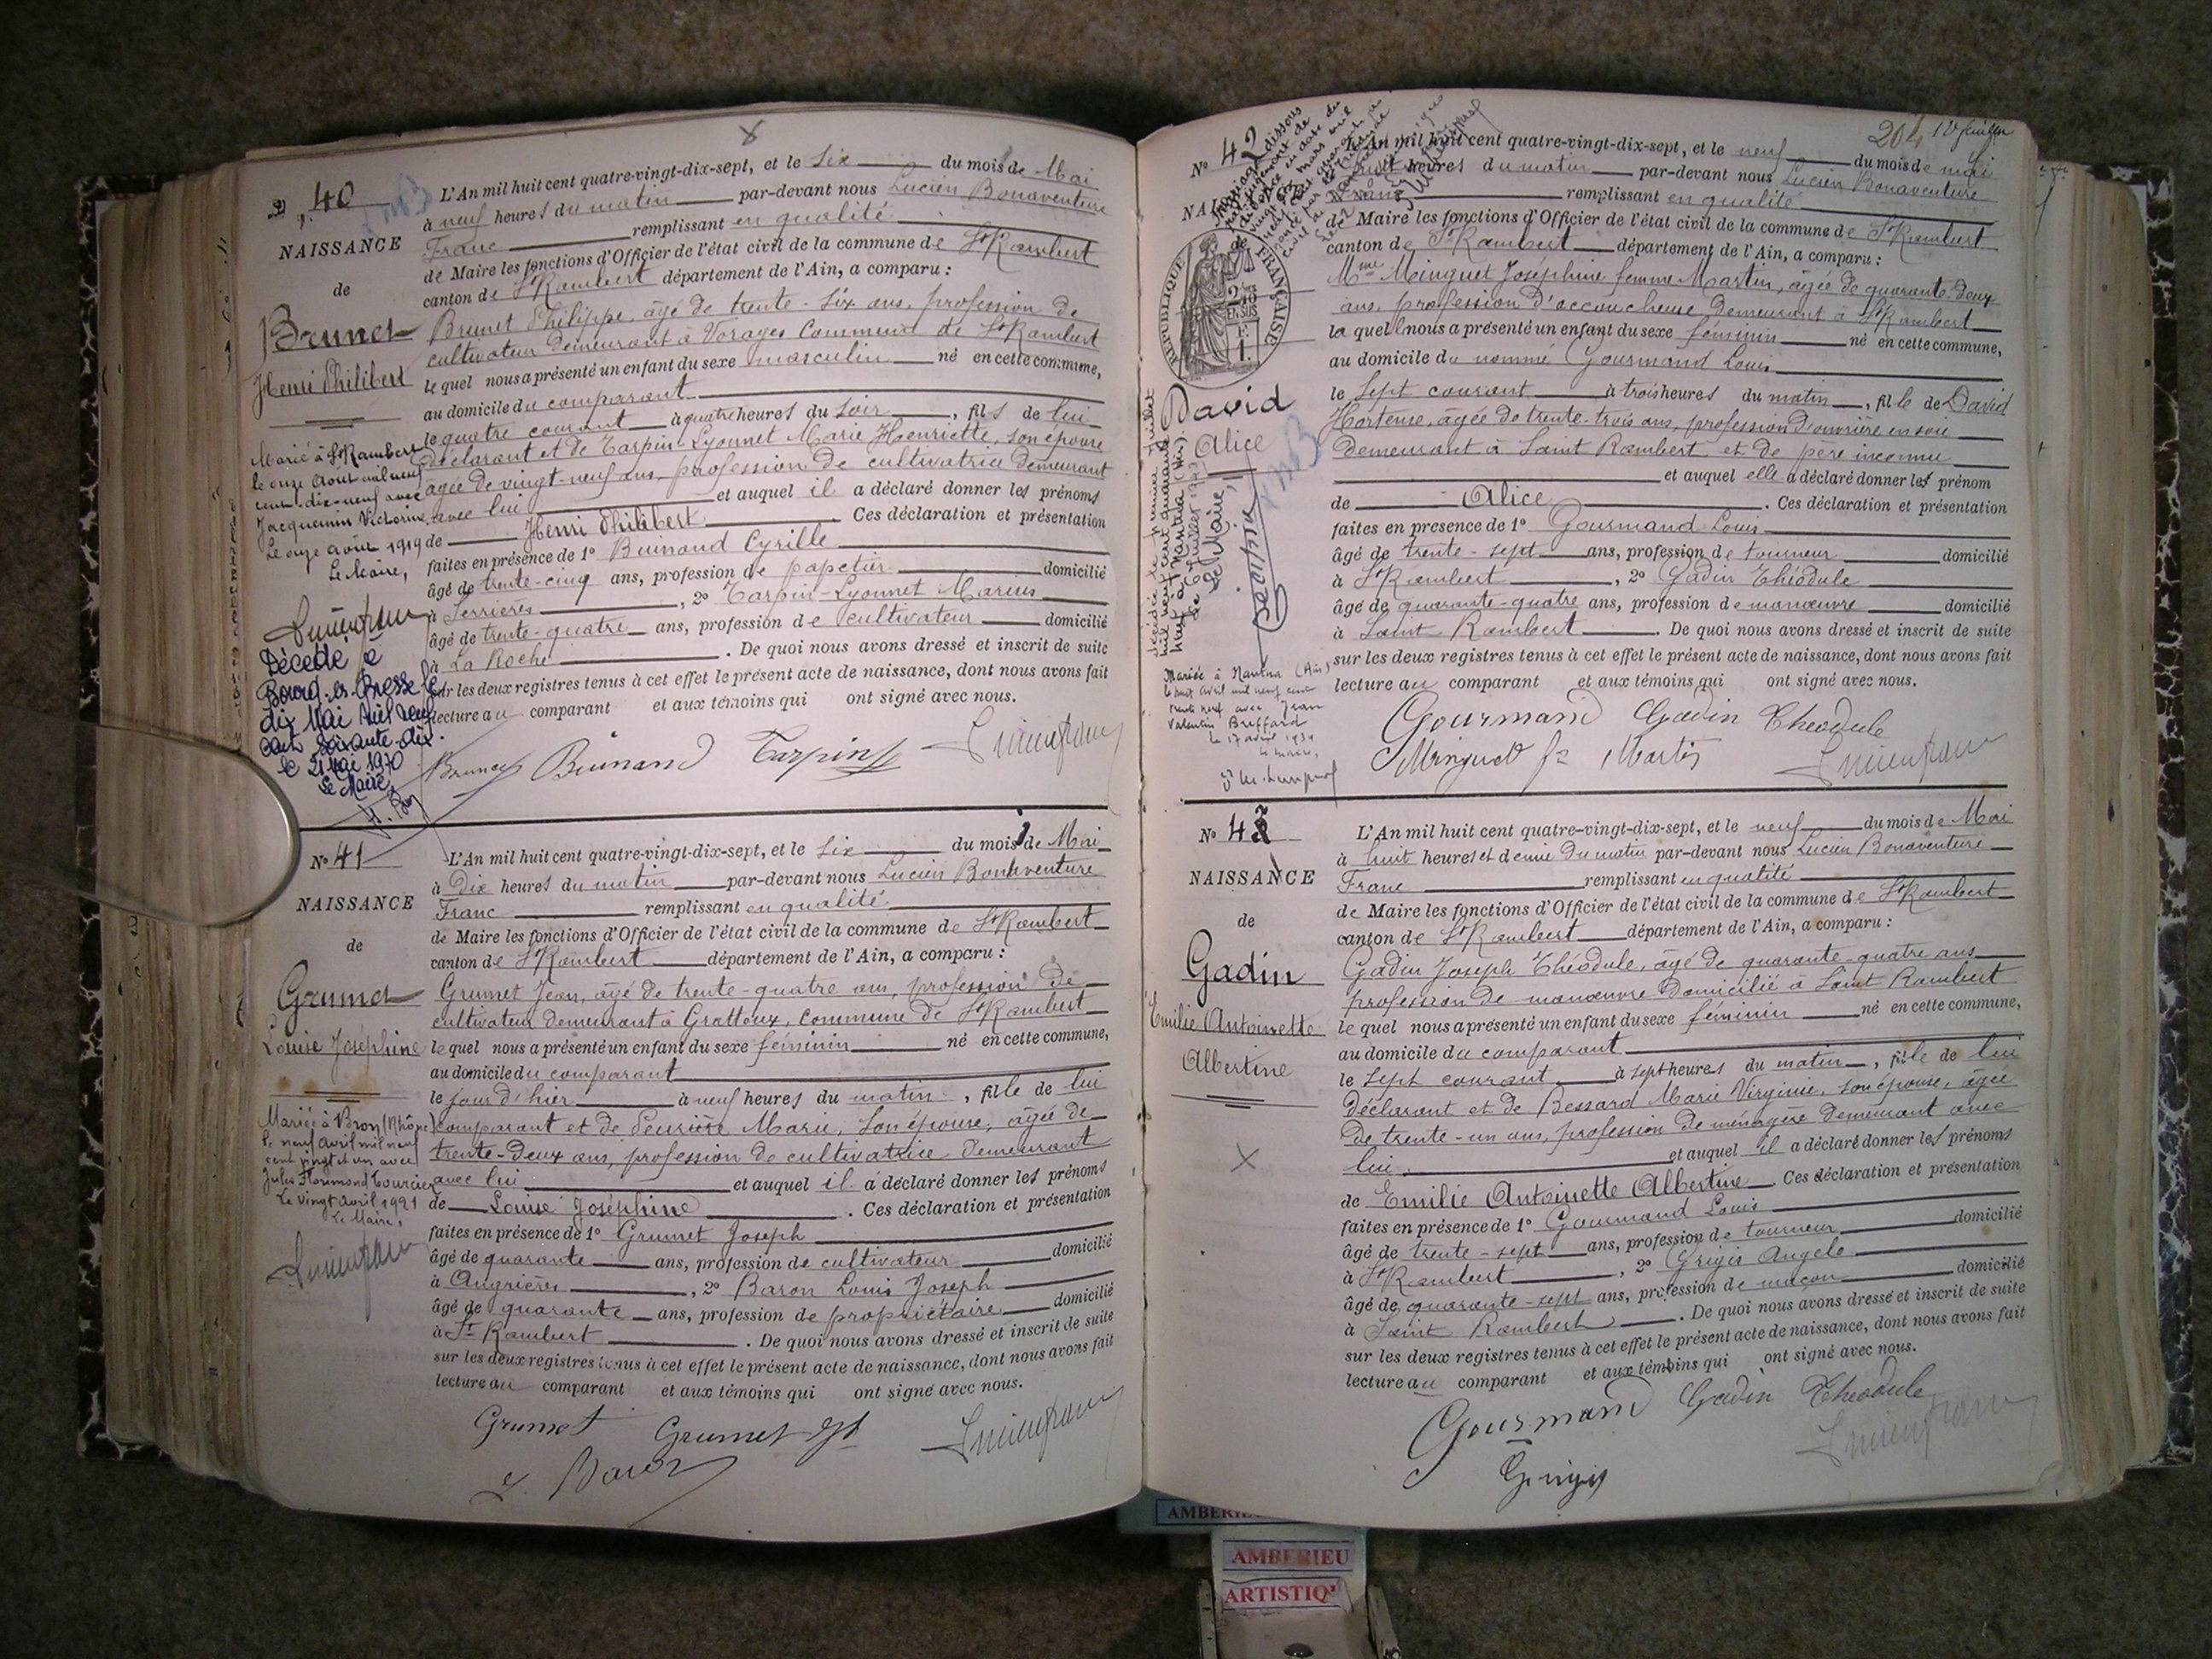 N° 40
NAISSANCE
de
Brunet
Henri Philibert
Marié à St Rambert
le onze Août mil neuf
cent dix-neuf avec
Jacquemin Victorine
Le onze août 1919
Le Maire,
Décédé à
Bourg-en-Bresse le
dix Mai mil neuf
cent soixante-dix.
le 21 Mai 1970
Le Maire,
L'An mil huit cent quatre-vingt-dix-sept, et le six du mois de Mai
à neuf heures du matin par-devant nous Lucien Bonaventure
Franc remplissant en qualité
de Maire les fonctions d'Officier de l'état civil de la commune de St Rambert
canton de St Rambert département de l'Ain, a comparu :
Brunet Philippe, âgé de trente-six ans, profession de
cultivateur demeurant à Vorages Commune de St Rambert
lequel nous a présenté un enfant du sexe masculin né en cette commune,
au domicile du comparant
le quatre courant à quatre heures du soir, fils de lui
déclarant et de Tarpin-Lyonnet Marie Henriette, son épouse
âgée de vingt-neuf ans, profession de cultivatrice demeurant
avec lui et auquel il a déclaré donner les prénoms
de Henri Philibert Ces déclaration et présentation
faites en présence de 1° Buinand Cyrille
âgé de trente-cinq ans, profession de papetier domicilié
à Serrières, 2° Tarpin-Lyonnet Marius
âgé de trente-quatre ans, profession de cultivateur domicilié
à La Roche. De quoi nous avons dressé et inscrit de suite
sur les deux registres tenus à cet effet le présent acte de naissance, dont nous avons fait
lecture au comparant et aux témoins qui ont signé avec nous.
Brunet Buinand Tarpin
N° 41
NAISSANCE
de
Grumet
Louise Joséphine
Mariée à Bron (Rhône)
le neuf Avril mil neuf
cent vingt et un avec
Jules Florimond Tourcier
Le vingt Avril 1921
Le Maire,
L'An mil huit cent quatre-vingt-dix-sept, et le six du mois de Mai
à Dix heures du matin par-devant nous Lucien Bonaventure
Franc remplissant en qualité
de Maire les fonctions d'Officier de l'état civil de la commune de St Rambert
canton de St Rambert département de l'Ain, a comparu :
Grumet Jean, âgé de trente-quatre ans, profession de
cultivateur demeurant à Grattoux, commune de St Rambert
lequel nous a présenté un enfant du sexe féminin né en cette commune,
au domicile du comparant
le jour d'hier à neuf heures du matin, fille de lui
comparant et de Marie, son épouse, âgée de
trente-deux ans, profession de cultivatrice demeurant
avec lui et auquel il a déclaré donner les prénoms
de Louise Joséphine. Ces déclaration et présentation
faites en présence de 1° Grumet Joseph
âgé de quarante ans, profession de cultivateur domicilié
à Angrières, 2° Baron Louis Joseph
âgé de quarante ans, profession de propriétaire domicilié
à St Rambert. De quoi nous avons dressé et inscrit de suite
sur les deux registres tenus à cet effet le présent acte de naissance, dont nous avons fait
lecture au comparant et aux témoins qui ont signé avec nous.
Grumet Grumet
L. Baron
204
N° 42
RÉPUBLIQUE FRANÇAISE
David
Alice
Mariée à Nantua (Ain)
le huit avril mil neuf cent
trente neuf avec Jean
Valentin Buffard
le 17 avril 1939
le maire,
L'An mil huit cent quatre-vingt-dix-sept, et le neuf du mois de Mai
heures du matin par-devant nous Lucien Bonaventure
remplissant en qualité
de Maire les fonctions d'Officier de l'état civil de la commune de St Rambert
canton de St Rambert département de l'Ain, a comparu :
Mme Minguet Joséphine femme Martin, âgée de quarante-deux
ans, profession d'accoucheuse demeurant à St Rambert
laquelle nous a présenté un enfant du sexe féminin né en cette commune,
au domicile du nommé Gourmand Louis
le sept courant à trois heures du matin, fille de David
Hortense, âgée de trente-trois ans, profession d'ouvrière en soie
demeurant à Saint Rambert et de père inconnu
et auquel elle a déclaré donner les prénom
de Alice. Ces déclaration et présentation
faites en présence de 1° Gourmand Louis
âgé de trente-sept ans, profession de tourneur domicilié
à St Rambert, 2° Gadin Théodule
âgé de quarante-quatre ans, profession de manœuvre domicilié
à Saint Rambert. De quoi nous avons dressé et inscrit de suite
sur les deux registres tenus à cet effet le présent acte de naissance, dont nous avons fait
lecture au comparant et aux témoins qui ont signé avec nous.
Gourmand Gadin Théodule
Minguet fe Martin
N° 43
NAISSANCE
de
Gadin
Emilie Antoinette
Albertine
L'An mil huit cent quatre-vingt-dix-sept, et le neuf du mois de Mai
à huit heures et demie du matin par-devant nous Lucien Bonaventure
Franc remplissant en qualité
de Maire les fonctions d'Officier de l'état civil de la commune de St Rambert
canton de St Rambert département de l'Ain, a comparu :
Gadin Joseph Théodule, âgé de quarante-quatre ans
profession de manœuvre domicilié à Saint Rambert
lequel nous a présenté un enfant du sexe féminin né en cette commune,
au domicile du comparant
le sept courant à sept heures du matin, fille de lui
déclarant et de Bessard Marie Virginie, son épouse, âgée
de trente-un ans, profession de ménagère demeurant avec
lui et auquel il a déclaré donner les prénoms
de Emilie Antoinette Albertine. Ces déclaration et présentation
faites en présence de 1° Gourmand Louis
âgé de trente-sept ans, profession de tourneur domicilié
à St Rambert, 2° Grigis Angelo
âgé de quarante-sept ans, profession de maçon domicilié
à Saint Rambert. De quoi nous avons dressé et inscrit de suite
sur les deux registres tenus à cet effet le présent acte de naissance, dont nous avons fait
lecture au comparant et aux témoins qui ont signé avec nous.
Gourmand Gadin Théodule
Grigis
AMBERIEU
ARTISTIQ'